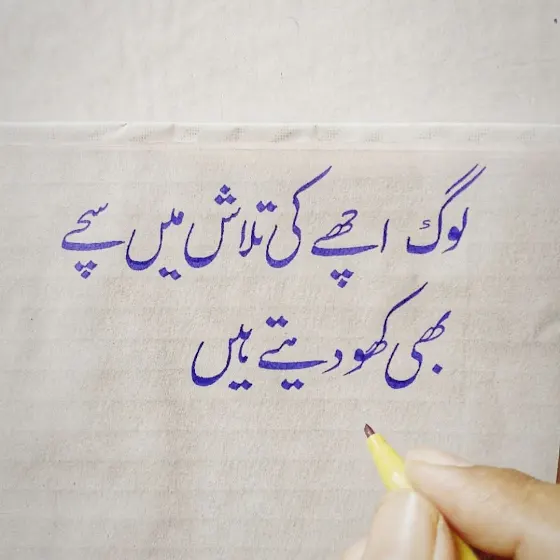 لوگ اچھے کی تلاش میں سچے
بھی کھو دیتے ہیں